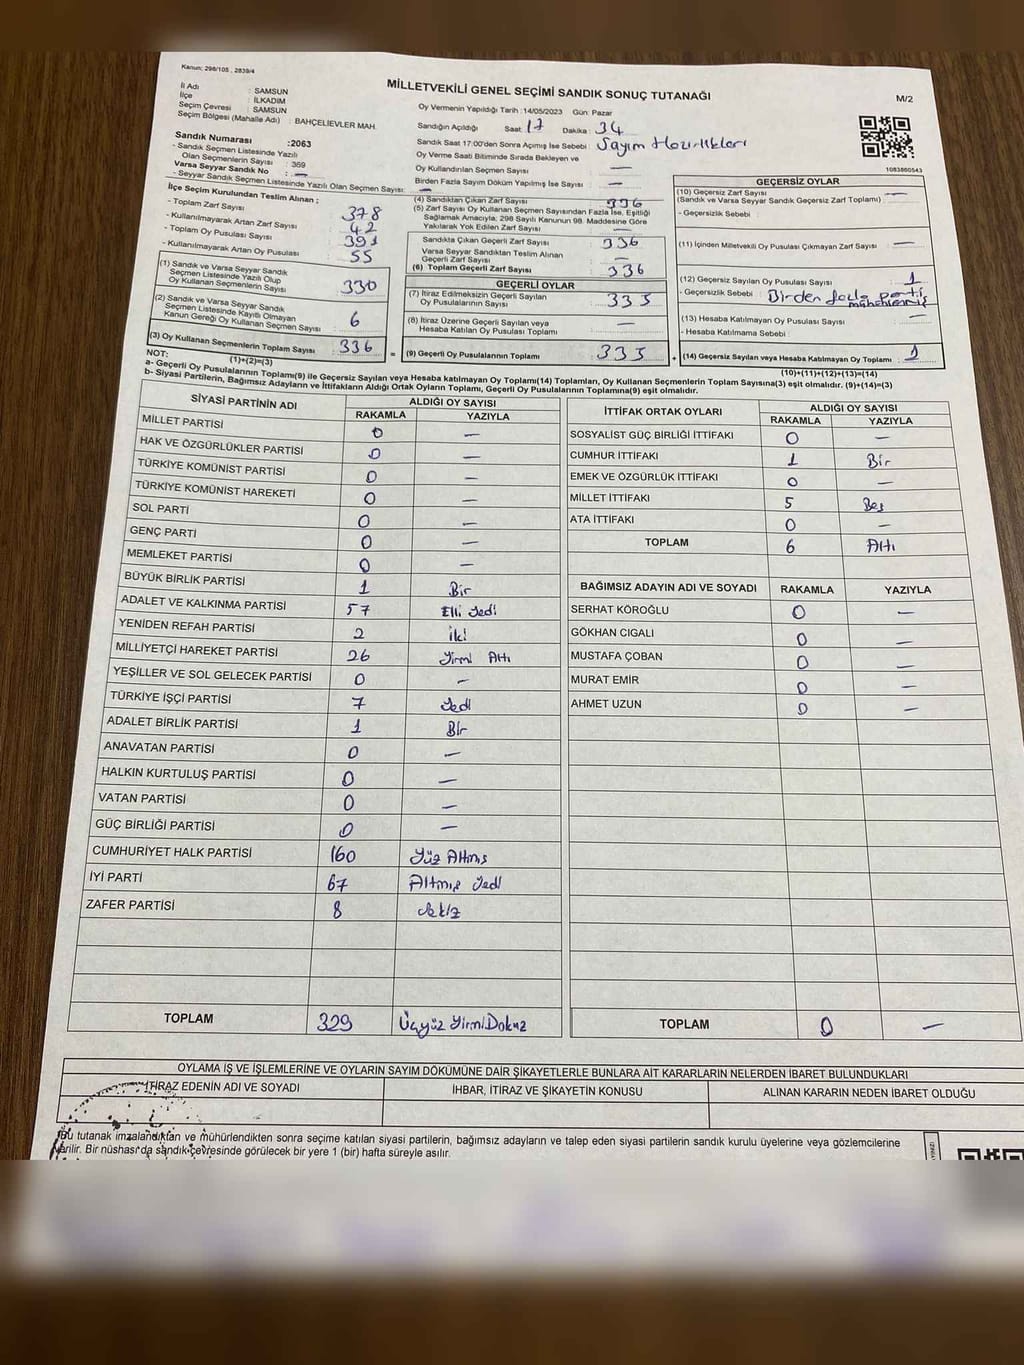 Kanun; 298/105 , 2839/4
MİLLETVEKİLİ GENEL SEÇİMİ SANDIK SONUÇ TUTANAĞI
M/2
İl Adı : SAMSUN
İlçe : İLKADIM
Seçim Çevresi : SAMSUN
Seçim Bölgesi (Mahalle Adı) : BAHÇELİEVLER MAH.
Sandık Numarası :2063
- Sandık Seçmen Listesinde Yazılı
Olan Seçmenlerin Sayısı : 369
Varsa Seyyar Sandık No : —
- Seyyar Sandık Seçmen Listesinde Yazılı Olan Seçmen Sayısı: —
Oy Vermenin Yapıldığı Tarih :14/05/2023 Gün: Pazar
Sandığın Açıldığı Saat : 17 Dakika : 34
Sandık Saat 17:00'den Sonra Açılmış İse Sebebi : Sayım Hazırlıkları
Oy Verme Saati Bitiminde Sırada Bekleyen ve
Oy Kullandırılan Seçmen Sayısı —
Birden Fazla Sayım Döküm Yapılmış İse Sayısı : —
1083860543
İlçe Seçim Kurulundan Teslim Alınan ;
- Toplam Zarf Sayısı 378
- Kullanılmayarak Artan Zarf Sayısı 42
- Toplam Oy Pusulası Sayısı 391
- Kullanılmayarak Artan Oy Pusulası 55
(1) Sandık ve Varsa Seyyar Sandık
Seçmen Listesinde Yazılı Olup
Oy Kullanan Seçmenlerin Sayısı 330
(2) Sandık ve Varsa Seyyar Sandık
Seçmen Listesinde Kayıtlı Olmayan
Kanun Gereği Oy Kullanan Seçmen Sayısı 6
(3) Oy Kullanan Seçmenlerin Toplam Sayısı 336
(1)+(2)=(3)
(4) Sandıktan Çıkan Zarf Sayısı 336
(5) Zarf Sayısı Oy Kullanan Seçmen Sayısından Fazla İse, Eşitliği
Sağlamak Amacıyla, 298 Sayılı Kanunun 98. Maddesine Göre
Yakılarak Yok Edilen Zarf Sayısı —
Sandıkta Çıkan Geçerli Zarf Sayısı 336
Varsa Seyyar Sandıktan Teslim Alınan
Geçerli Zarf Sayısı —
(6) Toplam Geçerli Zarf Sayısı 336
GEÇERLİ OYLAR
(7) İtiraz Edilmeksizin Geçerli Sayılan
Oy Pusulalarının Sayısı 335
(8) İtiraz Üzerine Geçerli Sayılan veya
Hesaba Katılan Oy Pusulası Toplamı —
= (9) Geçerli Oy Pusulalarının Toplamı 335
GEÇERSİZ OYLAR
(10) Geçersiz Zarf Sayısı —
(Sandık ve Varsa Seyyar Sandık Geçersiz Zarf Toplamı)
- Geçersizlik Sebebi :
(11) İçinden Milletvekili Oy Pusulası Çıkmayan Zarf Sayısı —
(12) Geçersiz Sayılan Oy Pusulası Sayısı 1
- Geçersizlik Sebebi : Birden fazla parti
mühürlenmiş
(13) Hesaba Katılmayan Oy Pusulası Sayısı —
- Hesaba Katılmama Sebebi :
+ (14) Geçersiz Sayılan veya Hesaba Katılmayan Oy Toplamı 1
(10)+(11)+(12)+(13)=(14)
NOT:
a- Geçerli Oy Pusulalarının Toplamı(9) ile Geçersiz Sayılan veya Hesaba katılmayan Oy Toplamı(14) Toplamları, Oy Kullanan Seçmenlerin Toplam Sayısına(3) eşit olmalıdır. (9)+(14)=(3)
b- Siyasi Partilerin, Bağımsız Adayların ve İttifakların Aldığı Ortak Oyların Toplamı, Geçerli Oy Pusulalarının Toplamına(9) eşit olmalıdır.
SİYASİ PARTİNİN ADI ALDIĞI OY SAYISI
RAKAMLA YAZIYLA
MİLLET PARTİSİ 0 —
HAK VE ÖZGÜRLÜKLER PARTİSİ 0 —
TÜRKİYE KOMÜNİST PARTİSİ 0 —
TÜRKİYE KOMÜNİST HAREKETİ 0 —
SOL PARTİ 0 —
GENÇ PARTİ 0 —
MEMLEKET PARTİSİ 0 —
BÜYÜK BİRLİK PARTİSİ 1 Bir
ADALET VE KALKINMA PARTİSİ 57 Elli Yedi
YENİDEN REFAH PARTİSİ 2 İki
MİLLİYETÇİ HAREKET PARTİSİ 26 Yirmi Altı
YEŞİLLER VE SOL GELECEK PARTİSİ 0 —
TÜRKİYE İŞÇİ PARTİSİ 7 Yedi
ADALET BİRLİK PARTİSİ 1 Bir
ANAVATAN PARTİSİ 0 —
HALKIN KURTULUŞ PARTİSİ 0 —
VATAN PARTİSİ 0 —
GÜÇ BİRLİĞİ PARTİSİ 0 —
CUMHURİYET HALK PARTİSİ 160 Yüz Altmış
İYİ PARTİ 67 Altmış Yedi
ZAFER PARTİSİ 8 Sekiz
TOPLAM 329 Üçyüz YirmiDokuz
İTTİFAK ORTAK OYLARI ALDIĞI OY SAYISI
RAKAMLA YAZIYLA
SOSYALİST GÜÇ BİRLİĞİ İTTİFAKI 0 —
CUMHUR İTTİFAKI 1 Bir
EMEK VE ÖZGÜRLÜK İTTİFAKI 0 —
MİLLET İTTİFAKI 5 Beş
ATA İTTİFAKI 0 —
TOPLAM 6 Altı
BAĞIMSIZ ADAYIN ADI VE SOYADI RAKAMLA YAZIYLA
SERHAT KÖROĞLU 0 —
GÖKHAN CIGALI 0 —
MUSTAFA ÇOBAN 0 —
MURAT EMİR 0 —
AHMET UZUN 0 —
TOPLAM 0 —
OYLAMA İŞ VE İŞLEMLERİNE VE OYLARIN SAYIM DÖKÜMÜNE DAİR ŞİKAYETLERLE BUNLARA AİT KARARLARIN NELERDEN İBARET BULUNDUKLARI
İTİRAZ EDENİN ADI VE SOYADI İHBAR, İTİRAZ VE ŞİKAYETİN KONUSU ALINAN KARARIN NEDEN İBARET OLDUĞU
Bu tutanak imzalandıktan ve mühürlendikten sonra seçime katılan siyasi partilerin, bağımsız adayların ve talep eden siyasi partilerin sandık kurulu üyelerine veya gözlemcilerine
verilir. Bir nüshası da sandık çevresinde görülecek bir yere 1 (bir) hafta süreyle asılır.